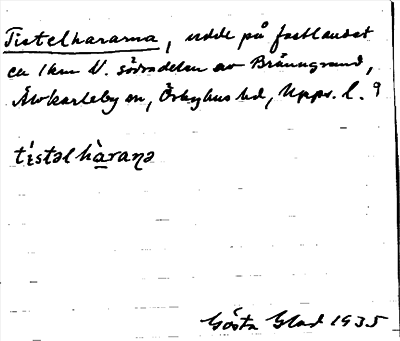 Tistelhararna, udde på fastlandet
ca 1 km V. södra delen av Bränngrund,
Älvkarleby sn, Örbyhus hd, Upps. l.
tístəl hàraṇə
Gösta Glad 1935